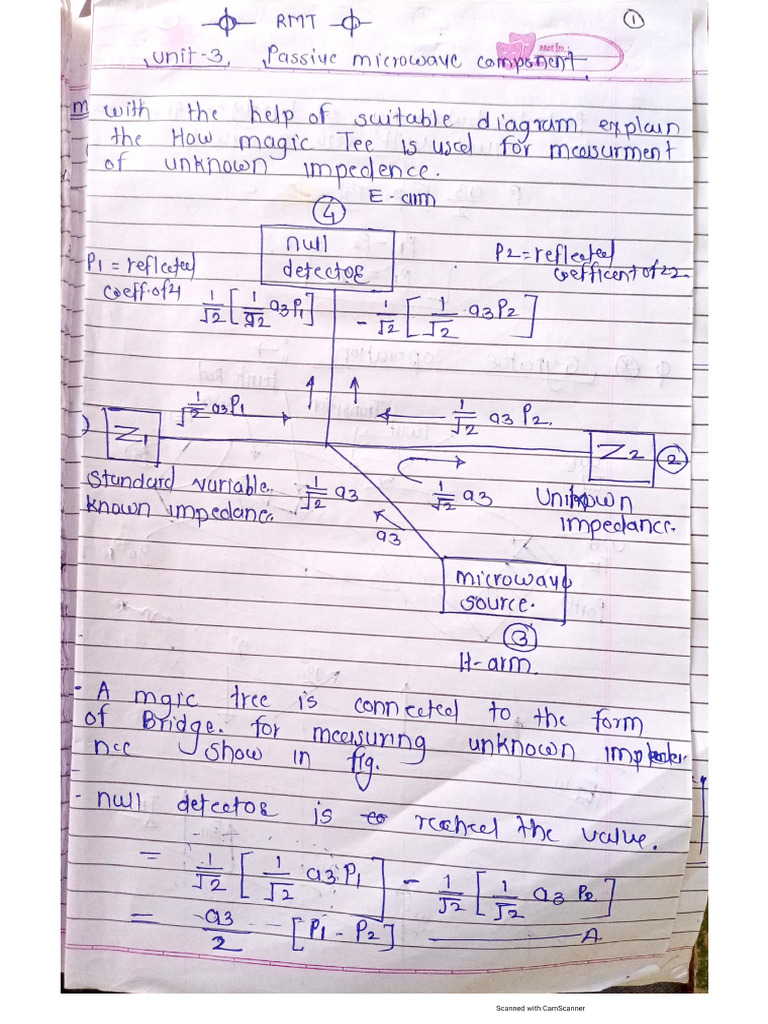 RMT
1
Unit-3, Passive microwave component.
with the help of suitable diagram explain
the How magic Tee is used for measurment
of unknown impedence.
E-arm
4
null
detector
P1 = reflected
coeff. of 4
P2 = reflected
coefficent of 22
1/√2 [1/√2 a3P1]
- 1/√2 [1/√2 · a3P2]
1/√2 a3P1
1/√2 a3 P2.
Z1
Z2
2
Standard variable
known impedanc.
1/√2 a3
1/√2 a3
Unknown
impedance.
a3
microwave
source.
3
H-arm
- A mgic tree is connected to the form
of Bridge. for measuring unknown
nce show in fig.
- null detector is the value.
= 1/√2 [1/√2 a3.P1] - 1/√2 [1/√2 a3 P2]
= a3/2 [P1 - P2] A
Scanned with CamScanner